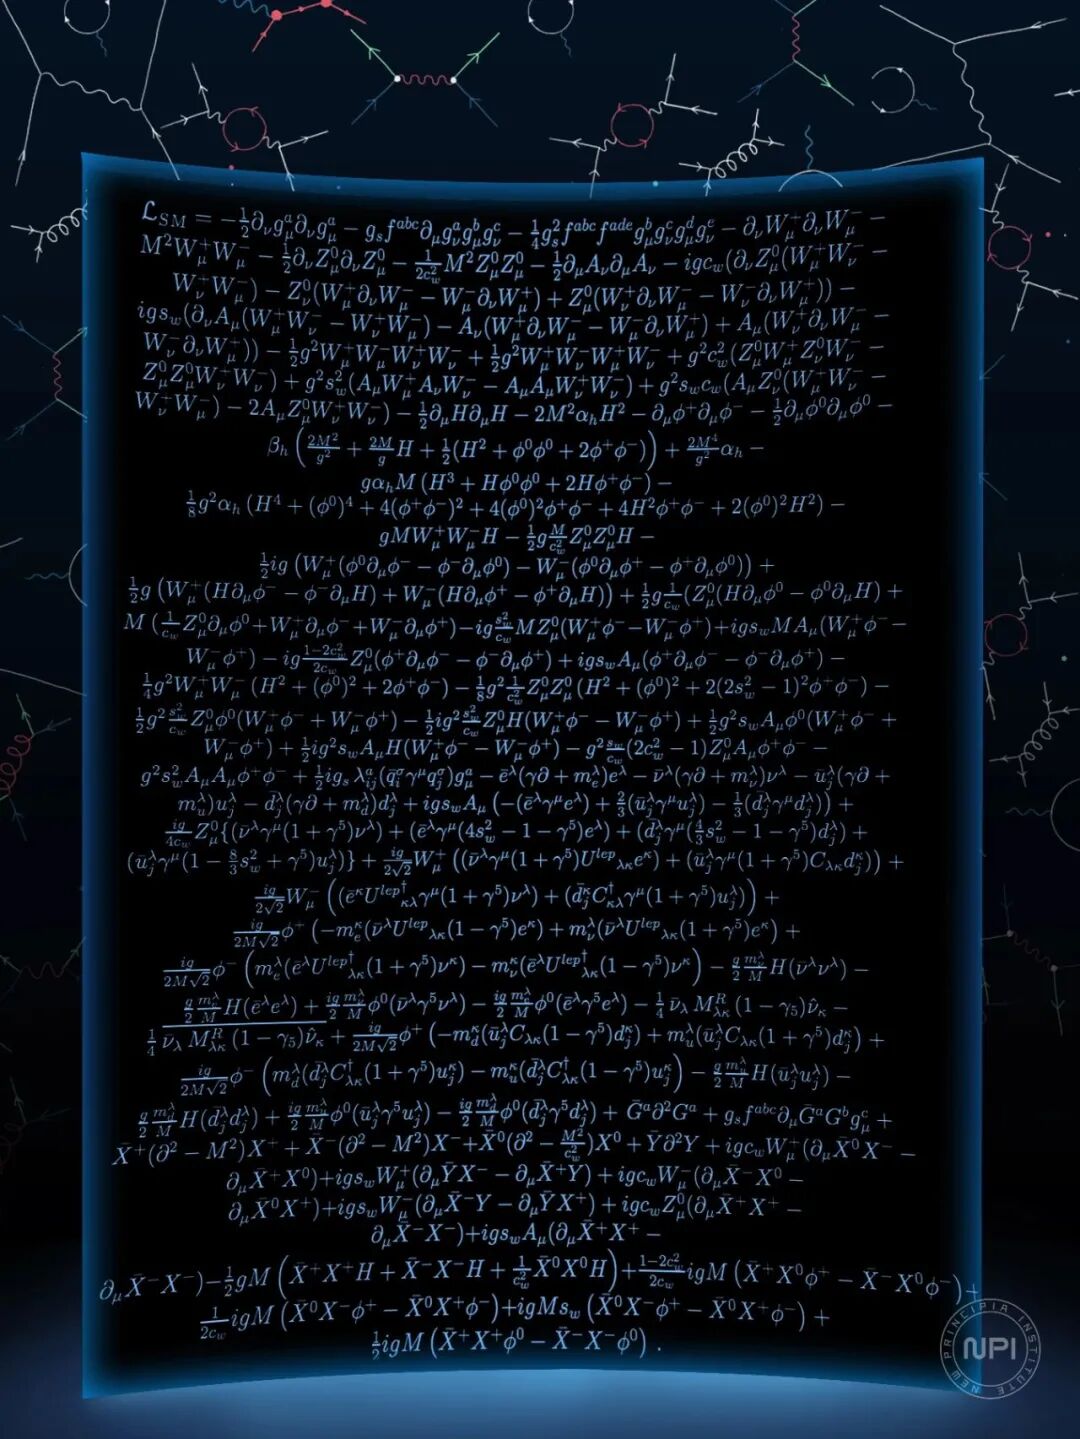 ℒ_SM = −½∂_νg^a_μ∂_νg^a_μ − g_sf^{abc}∂_μg^a_νg^b_μg^c_ν − ¼g²_sf^{abc}f^{ade}g^b_μg^c_νg^d_μg^e_ν − ∂_νW^+_μ∂_νW^−_μ −
M²W^+_μW^−_μ − ½∂_νZ^0_μ∂_νZ^0_μ − \frac{1}{2c²_w}M²Z^0_μZ^0_μ − ½∂_μA_ν∂_μA_ν − igc_w(∂_νZ^0_μ(W^+_μW^−_ν −
W^+_νW^−_μ) − Z^0_ν(W^+_μ∂_νW^−_μ − W^−_μ∂_νW^+_μ) + Z^0_μ(W^+_ν∂_νW^−_μ − W^−_ν∂_νW^+_μ)) −
igs_w(∂_νA_μ(W^+_μW^−_ν − W^+_νW^−_μ) − A_ν(W^+_μ∂_νW^−_μ − W^−_μ∂_νW^+_μ) + A_μ(W^+_ν∂_νW^−_μ −
W^−_ν∂_νW^+_μ)) − ½g²W^+_μW^−_μW^+_νW^−_ν + ½g²W^+_μW^−_νW^+_μW^−_ν + g²c²_w(Z^0_μW^+_μZ^0_νW^−_ν −
Z^0_μZ^0_μW^+_νW^−_ν) + g²s²_w(A_μW^+_μA_νW^−_ν − A_μA_μW^+_νW^−_ν) + g²s_wc_w(A_μZ^0_ν(W^+_μW^−_ν −
W^+_νW^−_μ) − 2A_μZ^0_μW^+_νW^−_ν) − ½∂_μH∂_μH − 2M²α_hH² − ∂_μϕ^+∂_μϕ^− − ½∂_μϕ^0∂_μϕ^0 −
β_h(\frac{2M²}{g²} + \frac{2M}{g}H + ½(H² + ϕ^0ϕ^0 + 2ϕ^+ϕ^−)) + \frac{2M⁴}{g²}α_h −
gα_hM(H³ + Hϕ^0ϕ^0 + 2Hϕ^+ϕ^−) −
⅛g²α_h(H⁴ + (ϕ^0)⁴ + 4(ϕ^+ϕ^−)² + 4(ϕ^0)²ϕ^+ϕ^− + 4H²ϕ^+ϕ^− + 2(ϕ^0)²H²) −
gMW^+_μW^−_μH − ½g\frac{M}{c²_w}Z^0_μZ^0_μH −
½ig(W^+_μ(ϕ^0∂_μϕ^− − ϕ^−∂_μϕ^0) − W^−_μ(ϕ^0∂_μϕ^+ − ϕ^+∂_μϕ^0)) +
½g(W^+_μ(H∂_μϕ^− − ϕ^−∂_μH) + W^−_μ(H∂_μϕ^+ − ϕ^+∂_μH)) + ½g\frac{1}{c_w}(Z^0_μ(H∂_μϕ^0 − ϕ^0∂_μH) +
M(\frac{1}{c_w}Z^0_μ∂_μϕ^0+W^+_μ∂_μϕ^−+W^−_μ∂_μϕ^+)−ig\frac{s²_w}{c_w}MZ^0_μ(W^+_μϕ^−−W^−_μϕ^+)+igs_wMA_μ(W^+_μϕ^−−
W^−_μϕ^+) − ig\frac{1−2c²_w}{2c_w}Z^0_μ(ϕ^+∂_μϕ^− − ϕ^−∂_μϕ^+) + igs_wA_μ(ϕ^+∂_μϕ^− − ϕ^−∂_μϕ^+) −
¼g²W^+_μW^−_μ(H² + (ϕ^0)² + 2ϕ^+ϕ^−) − ⅛g²\frac{1}{c²_w}Z^0_μZ^0_μ(H² + (ϕ^0)² + 2(2s²_w − 1)²ϕ^+ϕ^−) −
½g²\frac{s²_w}{c_w}Z^0_μϕ^0(W^+_μϕ^− + W^−_μϕ^+) − ½ig²\frac{s²_w}{c_w}Z^0_μH(W^+_μϕ^− − W^−_μϕ^+) + ½g²s_wA_μϕ^0(W^+_μϕ^− +
W^−_μϕ^+) + ½ig²s_wA_μH(W^+_μϕ^− − W^−_μϕ^+) − g²\frac{s_w}{c_w}(2c²_w − 1)Z^0_μA_μϕ^+ϕ^− −
g²s²_wA_μA_μϕ^+ϕ^− + ½ig_s λ^a_{ij}(q̄^σ_iγ^μq^σ_j)g^a_μ − ē^λ(γ∂ + m^λ_e)e^λ − ν̄^λ(γ∂ + m^λ_ν)ν^λ − ū^λ_j(γ∂ +
m^λ_u)u^λ_j − d̄^λ_j(γ∂ + m^λ_d)d^λ_j + igs_wA_μ(−(ē^λγ^μe^λ) + ⅔(ū^λ_jγ^μu^λ_j) − ⅓(d̄^λ_jγ^μd^λ_j)) +
\frac{ig}{4c_w}Z^0_μ{(ν̄^λγ^μ(1 + γ⁵)ν^λ) + (ē^λγ^μ(4s²_w − 1 − γ⁵)e^λ) + (d̄^λ_jγ^μ(\frac{4}{3}s²_w − 1 − γ⁵)d^λ_j) +
(ū^λ_jγ^μ(1 − \frac{8}{3}s²_w + γ⁵)u^λ_j)} + \frac{ig}{2√2}W^+_μ((ν̄^λγ^μ(1 + γ⁵)U^{lep}_{λκ}e^κ) + (ū^λ_jγ^μ(1 + γ⁵)C_{λκ}d^κ_j)) +
\frac{ig}{2√2}W^−_μ((ē^κU^{lep†}_{κλ}γ^μ(1 + γ⁵)ν^λ) + (d̄^κ_jC^†_{κλ}γ^μ(1 + γ⁵)u^λ_j)) +
\frac{ig}{2M√2}ϕ^+(−m^κ_e(ν̄^λU^{lep}_{λκ}(1 − γ⁵)e^κ) + m^λ_ν(ν̄^λU^{lep}_{λκ}(1 + γ⁵)e^κ) +
\frac{ig}{2M√2}ϕ^−(m^λ_e(ē^λU^{lep†}_{λκ}(1 + γ⁵)ν^κ) − m^κ_ν(ē^λU^{lep†}_{λκ}(1 − γ⁵)ν^κ) − \frac{g}{2}\frac{m^λ_ν}{M}H(ν̄^λν^λ) −
\frac{g}{2}\frac{m^λ_e}{M}H(ē^λe^λ) + \frac{ig}{2}\frac{m^λ_ν}{M}ϕ^0(ν̄^λγ⁵ν^λ) − \frac{ig}{2}\frac{m^λ_e}{M}ϕ^0(ē^λγ⁵e^λ) − ¼ ν̄_λ M^R_{λκ} (1 − γ_5)ν̂_κ −
¼ \overline{ν̄_λ M^R_{λκ} (1 − γ_5)ν̂_κ} + \frac{ig}{2M√2}ϕ^+(−m^κ_d(ū^λ_jC_{λκ}(1 − γ⁵)d^κ_j) + m^λ_u(ū^λ_jC_{λκ}(1 + γ⁵)d^κ_j) +
\frac{ig}{2M√2}ϕ^−(m^λ_d(d̄^λ_jC^†_{λκ}(1 + γ⁵)u^κ_j) − m^κ_u(d̄^λ_jC^†_{λκ}(1 − γ⁵)u^κ_j) − \frac{g}{2}\frac{m^λ_u}{M}H(ū^λ_ju^λ_j) −
\frac{g}{2}\frac{m^λ_d}{M}H(d̄^λ_jd^λ_j) + \frac{ig}{2}\frac{m^λ_u}{M}ϕ^0(ū^λ_jγ⁵u^λ_j) − \frac{ig}{2}\frac{m^λ_d}{M}ϕ^0(d̄^λ_jγ⁵d^λ_j) + Ḡ^a∂²G^a + g_sf^{abc}∂_μḠ^aG^bg^c_μ +
X̄^+(∂² − M²)X^+ + X̄^−(∂² − M²)X^−+X̄^0(∂² − \frac{M²}{c²_w})X^0 + Ȳ∂²Y + igc_wW^+_μ(∂_μX̄^0X^− −
∂_μX̄^+X^0)+igs_wW^+_μ(∂_μȲX^− − ∂_μX̄^+Y) + igc_wW^−_μ(∂_μX̄^−X^0 −
∂_μX̄^0X^+)+igs_wW^−_μ(∂_μX̄^−Y − ∂_μȲX^+) + igc_wZ^0_μ(∂_μX̄^+X^+ −
∂_μX̄^−X^−)+igs_wA_μ(∂_μX̄^+X^+ −
∂_μX̄^−X^−)−½gM(X̄^+X^+H + X̄^−X^−H + \frac{1}{c²_w}X̄^0X^0H)+\frac{1−2c²_w}{2c_w}igM(X̄^+X^0ϕ^+ − X̄^−X^0ϕ^−)+
\frac{1}{2c_w}igM(X̄^0X^−ϕ^+ − X̄^0X^+ϕ^−)+igMs_w(X̄^0X^−ϕ^+ − X̄^0X^+ϕ^−) +
½igM(X̄^+X^+ϕ^0 − X̄^−X^−ϕ^0) .
NEW PRINCIPIA INSTITUTE
NPI